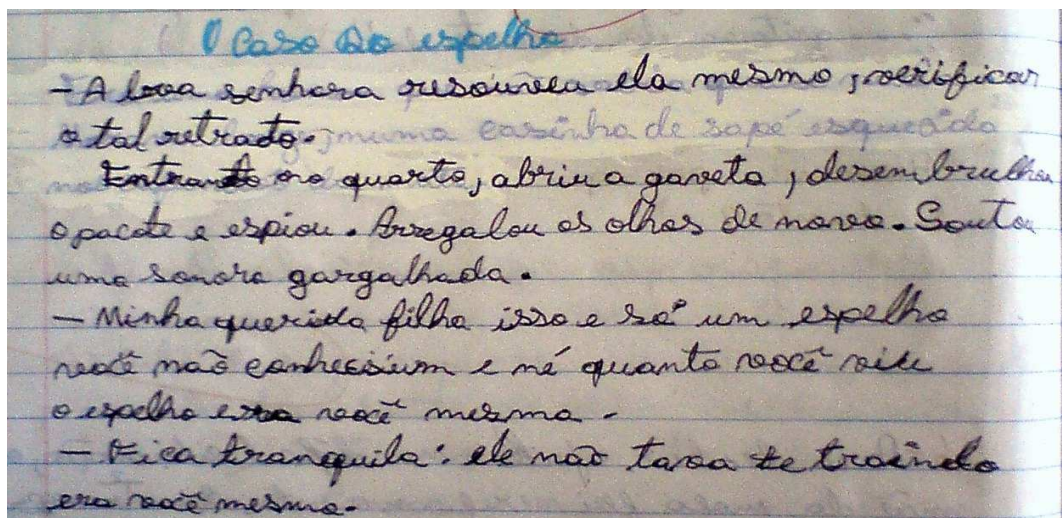 O Caso do espelho
- A boa senhora resouveu ela mesmo, verificar
o tal retrado.
Entrando no quarto, abriu a gaveta, desembrulhou
o pacote e espiou. Arregalou os olhos de novo. Soutou
uma sonora gargalhada.
- Minha querida filha isso e só um espelho
você não conhecium e né quanto você viu
o espelho era você mesma.
- Fica tranquila: ele não tava te traindo
era você mesma.